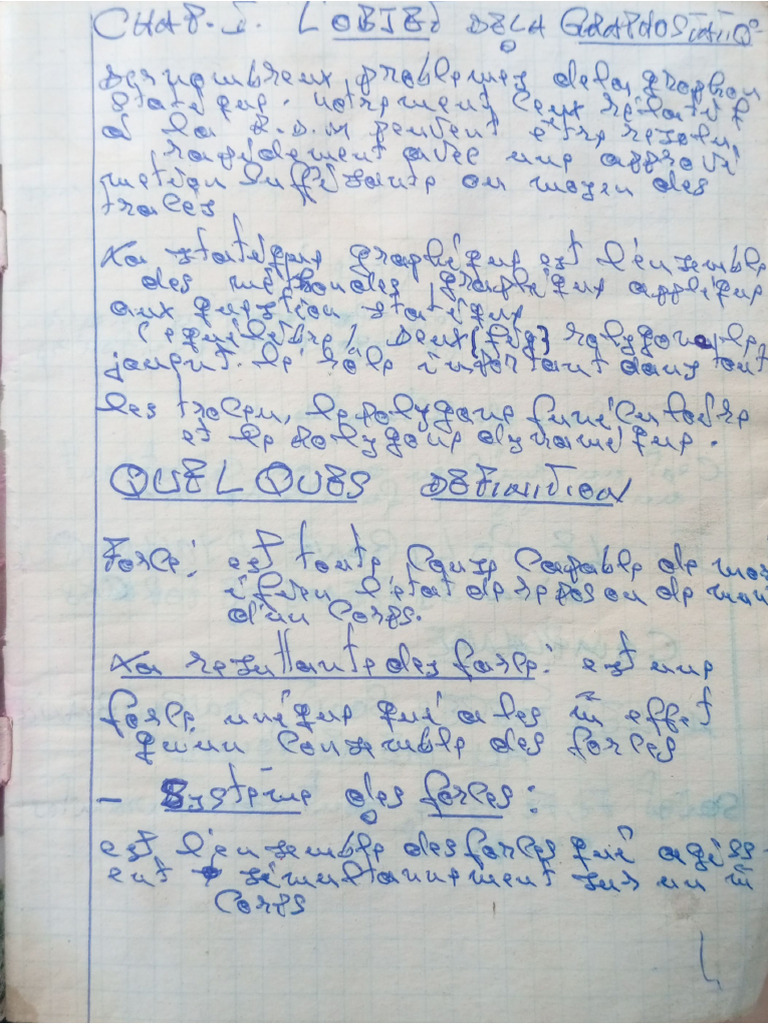 CHAP. I. L'OBJET DE LA GRAPHOSTATIQ
Des nombreux problemes de la graphou
statique. notrement ceux relatif
à la R.D.M peuvent être resolu,
rapidement avec une approxi
mation suffisante ou moyen des
traces
La statique graphique est l'ensemble
des methondes graphique applique
aux question statique
(equilibre) Deux (fig) polygonale,
jouent. le rôle important dans tout
les traceu, le polygone funiculaire
et le polygone dynamique.
QUELQUES DEFINITION
Force; est toute cause capable de mod
ifier l'etat de repos ou de mou
d'un corps.
La resultante des force: est une
force unique qui a les m̄ effet
qu'un l'onsemble des forces
- Système des forces:
est l'ensemble des forces qui agiss
ent simultanement sur un m̄
Corps